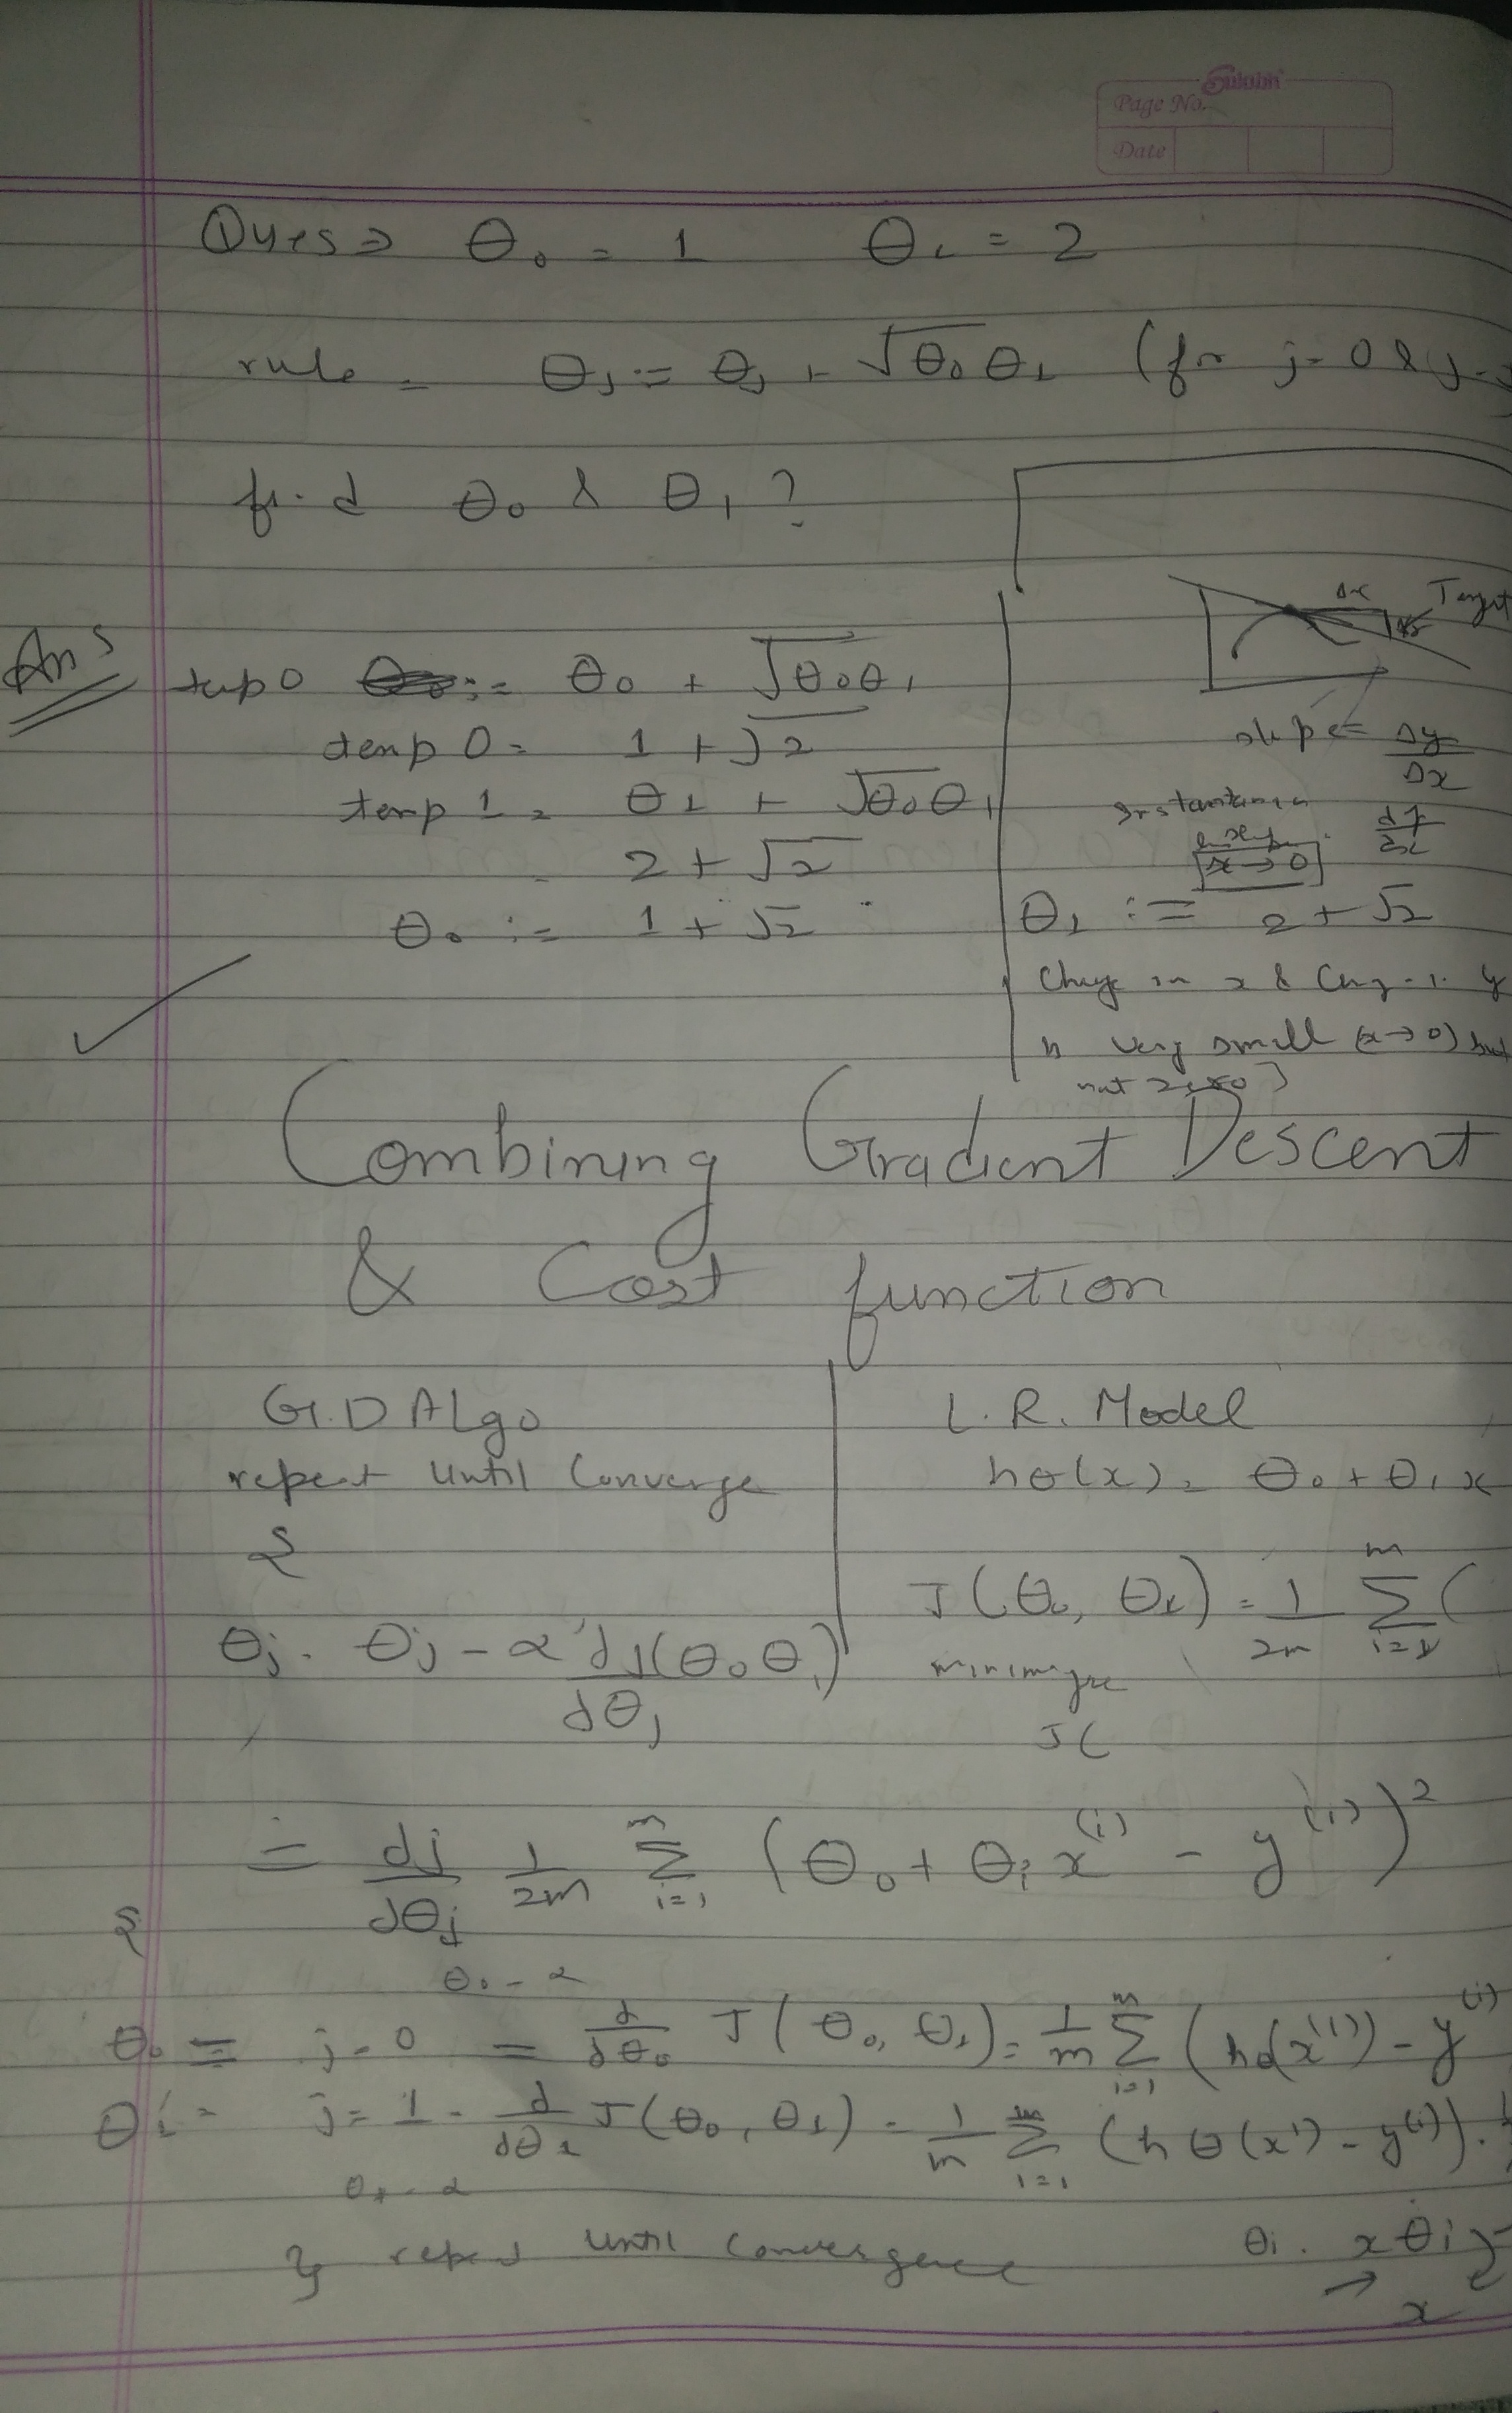 Sulabh
Page No.
Date
Ques ⇒ θ₀ = 1 θ₁ = 2
rule = θj := θj + √θ₀θ₁ (for j=0 & j=
find θ₀ & θ₁ ?
Ans temp 0 := θ₀ + √θ₀θ₁
temp 0 = 1 + √2
temp 1 = θ₁ + √θ₀θ₁
= 2 + √2
θ₀ := 1 + √2
Δx
slope = Δy/Δx
dy/dx
x → 0
θ₁ := 2 + √2
Change in x & Chang in y
is very small (x→0) but
not zero]
Combining Gradient Descent
& Cost function
G.D Algo
repeat until Converge
{
θj = θj - α dJ(θ₀θ₁)/dθj
L.R. Model
hθ(x) = θ₀ + θ₁x
J(θ₀, θ₁) = 1/2m Σ i=1 m (
minimize
J(
= dj/dθj 1/2m Σ i=1 m (θ₀ + θi x⁽ⁱ⁾ - y⁽ⁱ⁾)²
{
θ₀ - α
θ₀ = j=0 = d/dθ₀ J(θ₀, θ₁) = 1/m Σ i=1 m (hθ(x⁽ⁱ⁾) - y⁽ⁱ⁾
θ₁ = j=1 = d/dθ₁ J(θ₀, θ₁) = 1/m Σ i=1 m (hθ(xⁱ) - y⁽ⁱ⁾).
θ₁ - α
} repeat until convergence
θi . x θi
x